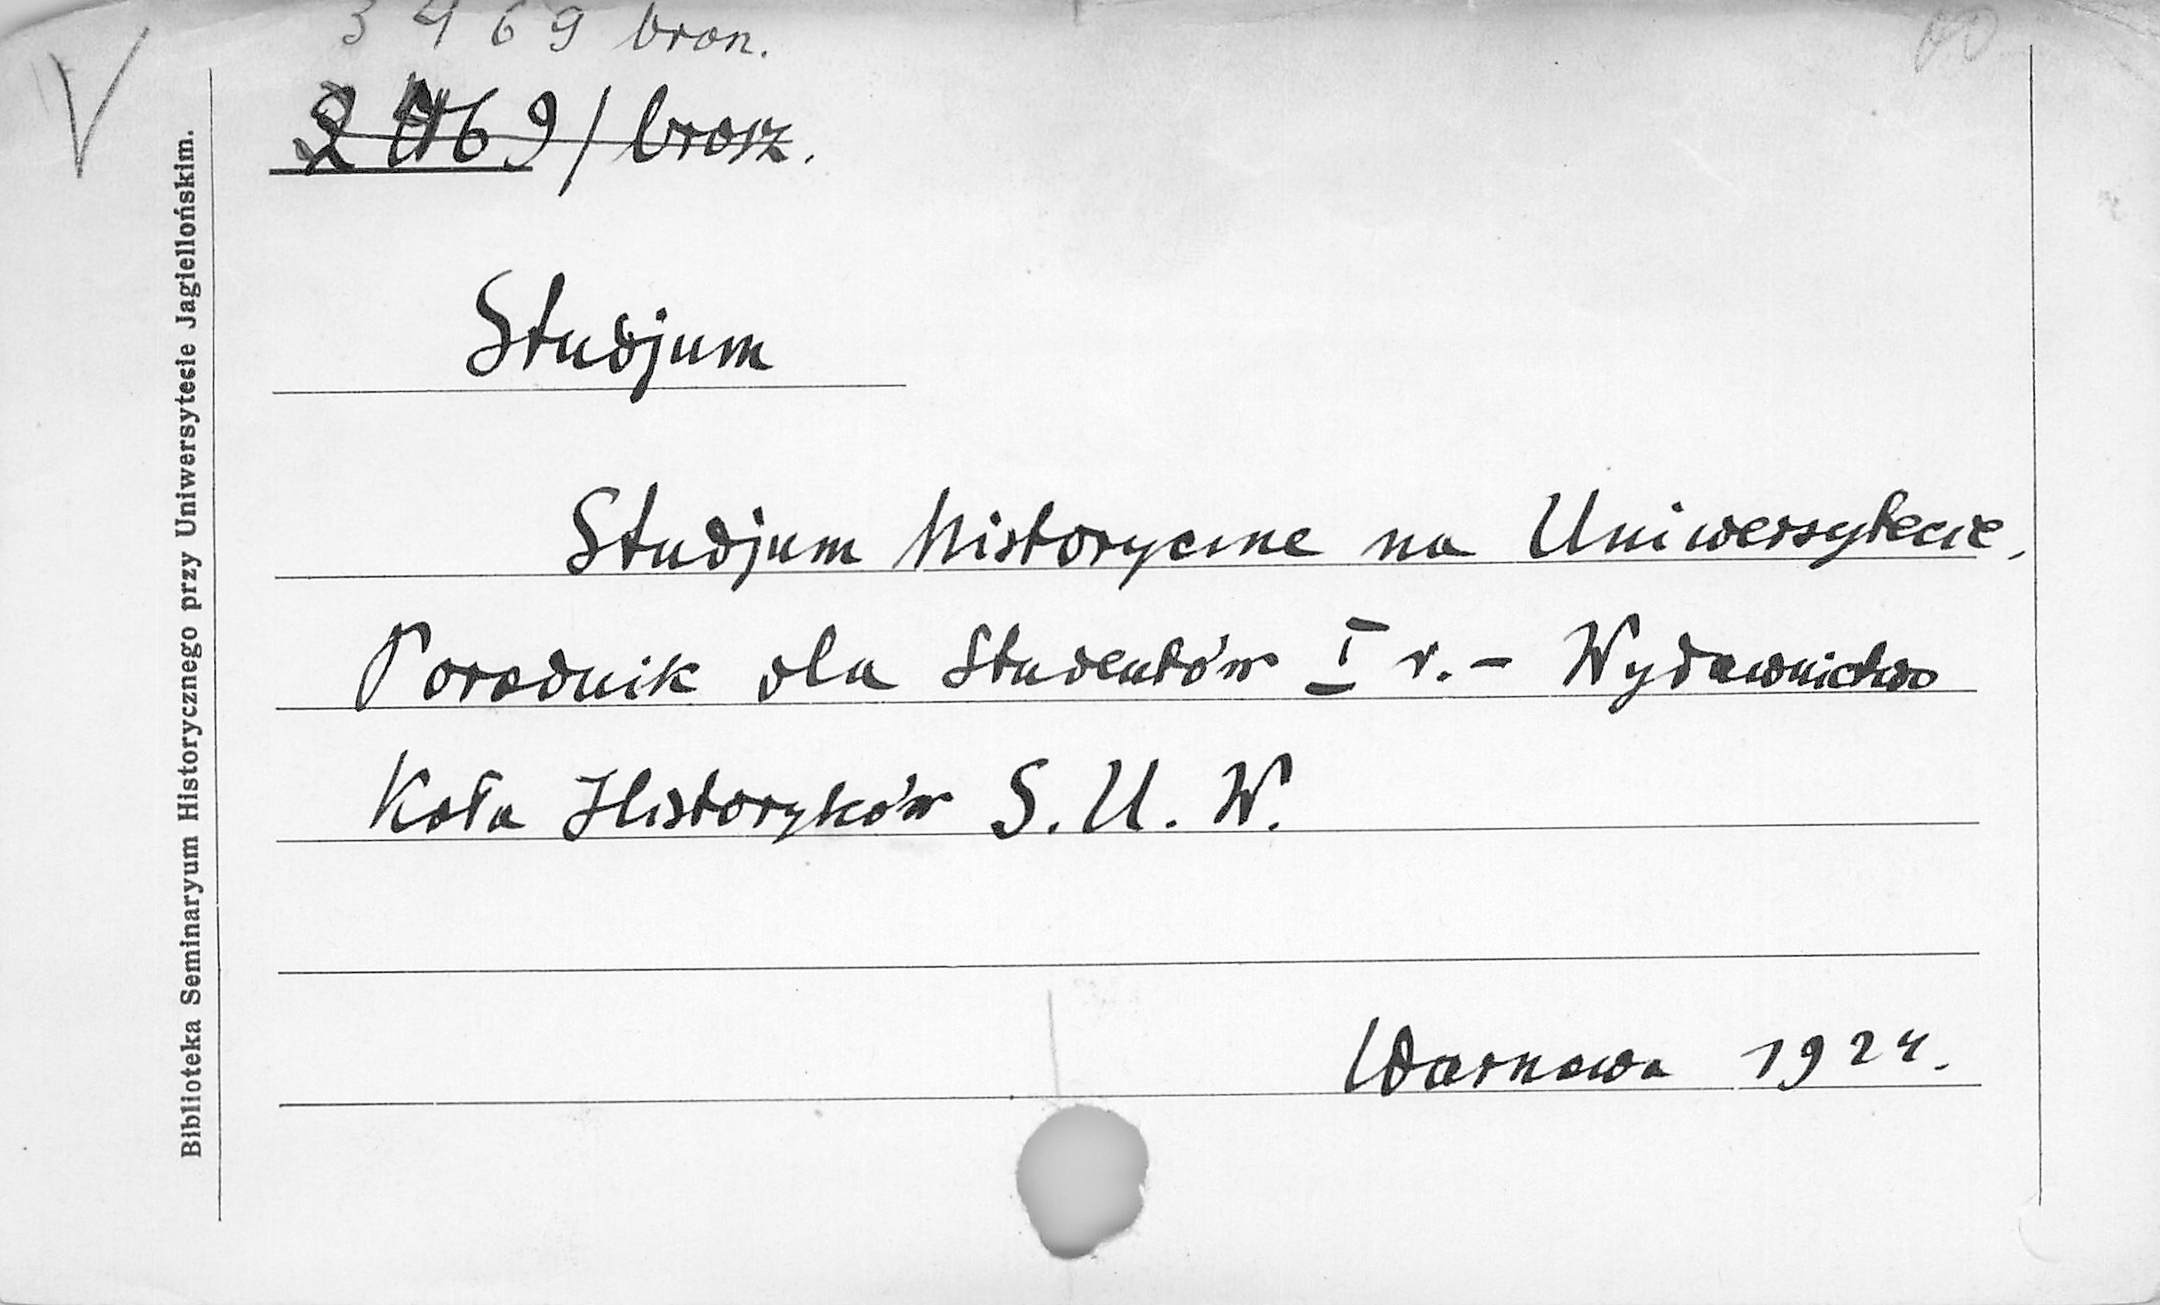 3469 bron.
69/brosz.
Studjum
Studjum historyczne na Uniwersytecie,
Poradnik dla Studentów I r. - Wydawnictwo
Koła Historyków S. U. W.
Warszawa 1924.
Biblioteka Seminaryum Historycznego przy Uniwersytecie Jagiellońskim.